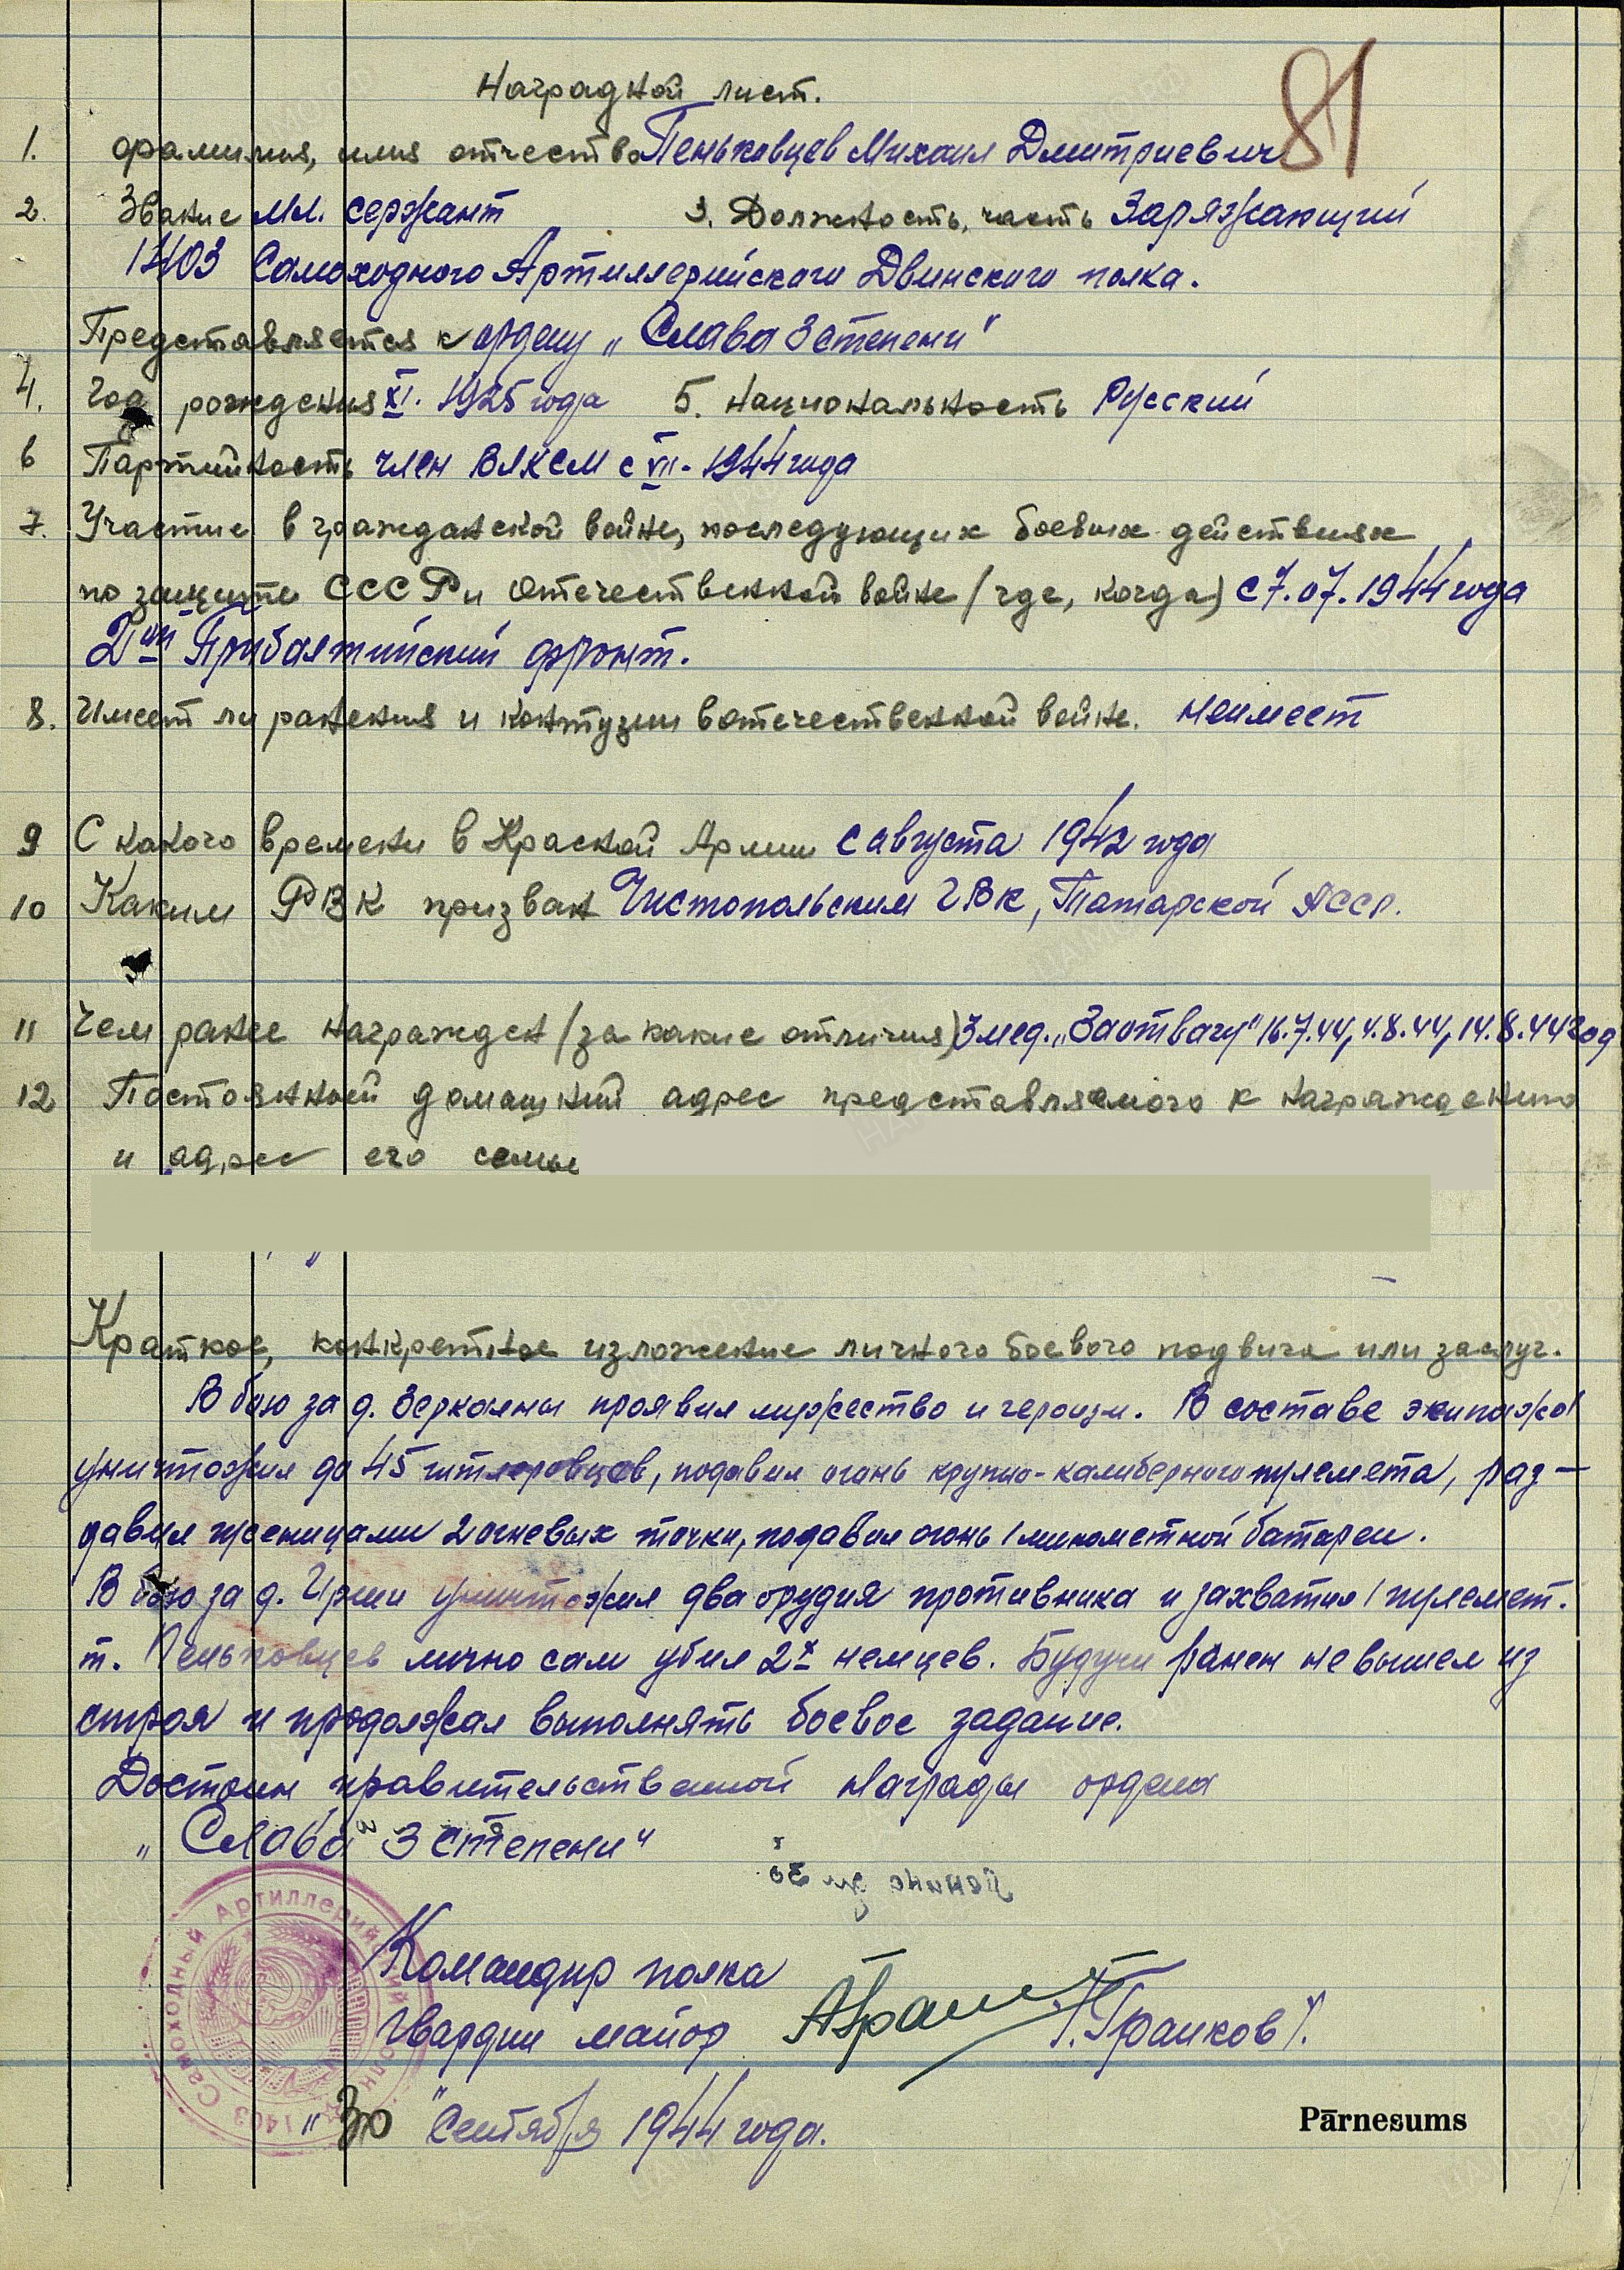 81
Наградной лист.
1. фамилия, имя отчество Пеньковцев Михаил Дмитриевич
2. Звание мл. сержант 3. Должность, часть Заряжающий
1403 Самоходного Артиллерийского Двинского полка.
Представляется к ордену „Слава 3 степени"
4. Год рождения XI. 1925 года 5. Национальность Русский
6 Партийность член ВЛКСМ с VII - 1944 года
7. Участие в гражданской войне, последующих боевых действиях
по защите СССР и отечественной войне (где, когда) с 7.07.1944 года
2ой Прибалтийский фронт.
8. Имеет ли ранения и контузии в отечественной войне. неимеет
9 С какого времени в Красной Армии с августа 1942 года
10 Каким РВК призван Чистопольским ГВК, Татарской АССР.
11 Чем ранее награжден (за какие отличия) 3 мед. „За отвагу" 16.7.44, 4.8.44, 14.8.44 год
12 Постоянный домашний адрес представляемого к награждению
и адрес его семьи
Краткое, конкретное изложение личного боевого подвига или заслуг.
В бою за д. Зеркаляны проявил мужество и героизм. В составе экипажа
уничтожил до 45 гитлеровцев, подавил огонь крупно-калиберного пулемета, раз-
давил гусеницами 2 огневых точки, подавил огонь 1 минометной батареи.
В бою за д. Ирши уничтожил два орудия противника и захватил 1 пулемет.
т. Пеньковцев лично сам убил 2х немцев. Будучи ранен не вышел из
строя и продолжал выполнять боевое задание.
Достоин правительственной награды ордена
„Слава 3 степени"
Командир полка
Гвардии майор /Граиков/.
„30" Сентября 1944 года.
1403 Самоходный Артиллерийский полк
Pārnesums